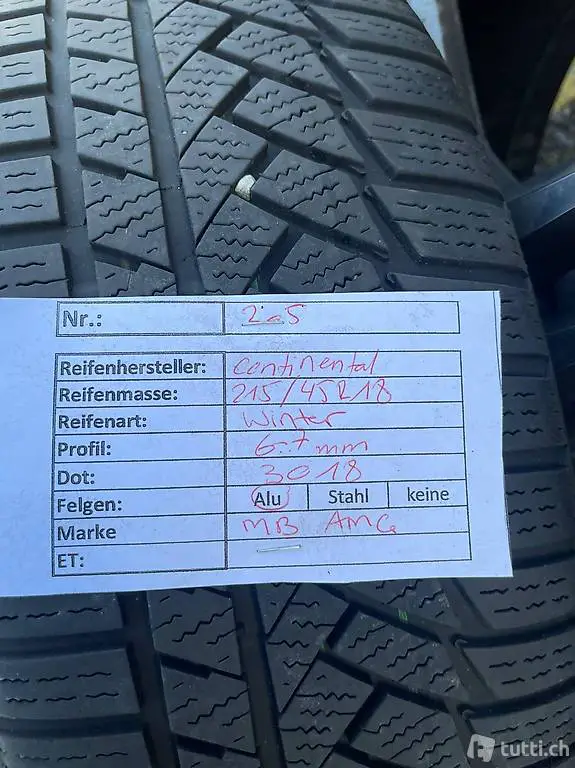 Nr.: 205
Reifenhersteller: Continental
Reifenmasse: 215/45R18
Reifenart: Winter
Profil: 6-7 mm
Dot: 3018
Felgen: Alu Stahl keine
Marke MB AMG
ET: —
tutti.ch